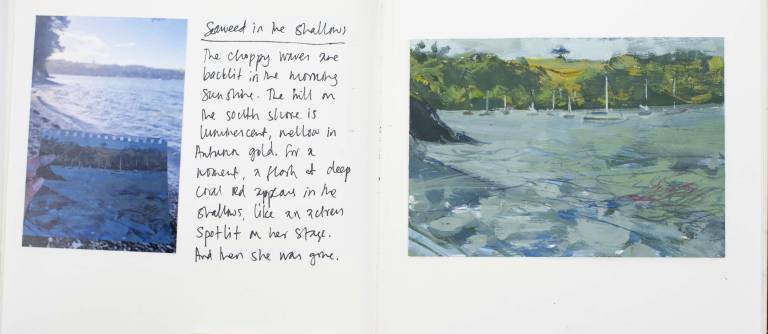 Seaweed in the Shallows
The choppy waves are
backlit in the morning
sunshine. The hill on
the south shore is
luminescent, mellow in
Autumn gold. For a
moment, a flash of deep
coral red appears in the
shallows, like an actress
spotlit on her stage.
And then she was gone.